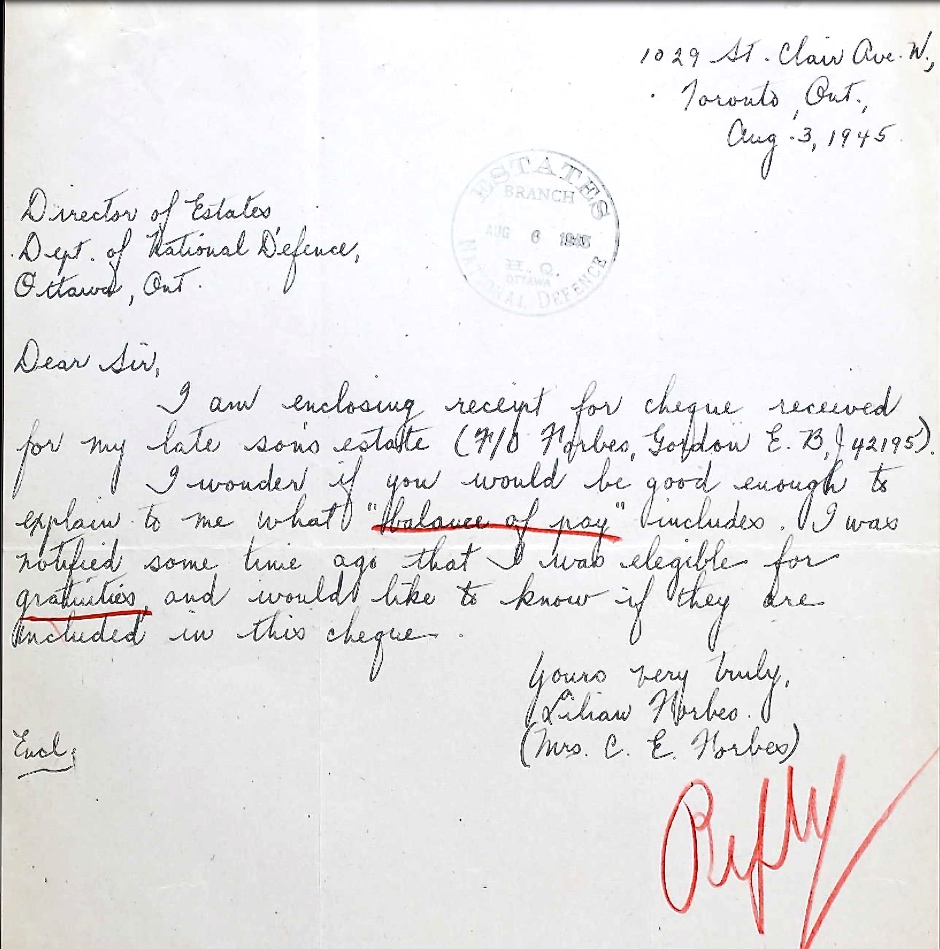 1029 St. Clair Ave. W.,
Toronto, Ont.,
Aug. 3, 1945.
ESTATES
BRANCH
AUG 6 1945
H. Q.
OTTAWA
NATIONAL DEFENCE
Director of Estates
Dept. of National Defence,
Ottawa, Ont.
Dear Sir,
I am enclosing receipt for cheque received
for my late son's estate (F/O Forbes, Gordon E. B, J 42195).
I wonder if you would be good enough to
explain to me what "balance of pay" includes. I was
notified some time ago that I was elegible for
gratuities, and would like to know if they are
included in this cheque.
Yours very truly,
Lilian Forbes.
(Mrs. C. E. Forbes)
Encl;
Reply